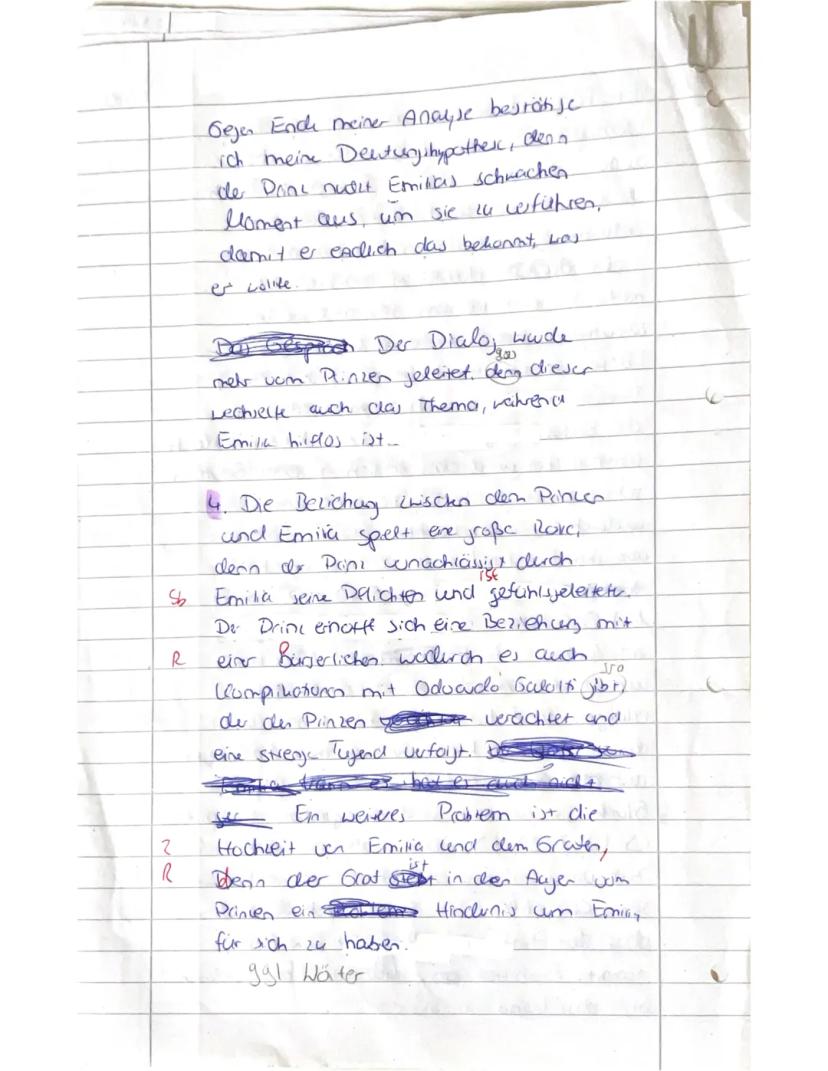 Gegen Ende meiner Analyse bestätige
ich meine Deutungshypothese, denn
der Prinz nutzt Emilias schwachen
Moment aus, um sie zu verführen,
damit er endlich das bekommt, was
er wollte.
Das Gespräch Der Dialog wurde
mehr vom Prinzen geleitet, denn dieser
wechselte auch das Thema, während
Emilia hilflos ist.
4. Die Beziehung zwischen dem Prinzen
und Emilia spielt eine große Rolle,
denn der Prinz vernachlässigt durch
ist
Sb Emilia seine Pflichten und gefühlsgeleitete.
Der Prinz erhofft sich eine Beziehung mit
R einer Bürgerlichen. wodurch es auch
Komplikationen mit Odoardo Galotti gibt,
der den Prinzen verachtet und
eine strenge Tugend verfolgt.
Ein weiteres Problem ist die
Z Hochzeit von Emilia und dem Grafen,
ist
R Denn der Graf in den Augen vom
Prinzen ein Hindernis um Emilia
für sich zu haben.
ggl. Wörter